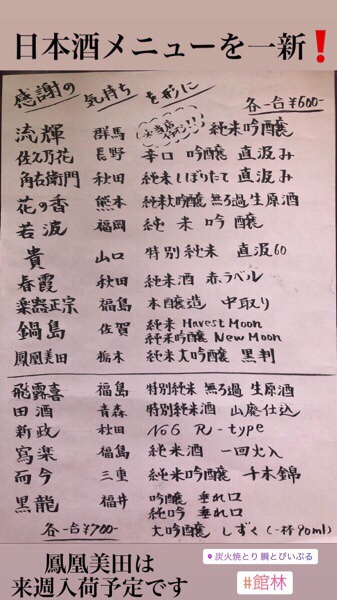 日本酒メニューを一新❗
感謝の 気持ち を形に
各一合¥600-
流輝 群馬 純米吟醸
佐久乃花 長野 辛口 吟醸 直汲み
角右衛門 秋田 純米しぼりたて 直汲み
花の香 熊本 純米大吟醸 無ろ過 生原酒
若波 福岡 純米吟醸
貴 山口 特別純米 直汲60
春霞 秋田 純米酒 赤ラベル
楽器正宗 福島 本醸造 中取り
鍋島 佐賀 純米 Harvest Moon
純米吟醸 New Moon
鳳凰美田 栃木 純米大吟醸 黒判
飛露喜 福島 特別純米 無ろ過 生原酒
田酒 青森 特別純米酒 山廃仕込
新政 秋田 No6 R-type
寫楽 福島 純米酒 一回火入
而今 三重 純米吟醸 千本錦
黒龍 福井 吟醸 垂れ口
純吟 垂れ口
各一合¥700- 大吟醸 しずく(一杯90ml)
鳳凰美田は
来週入荷予定です
炭火焼とり 瞬とぴいぷる
#館林